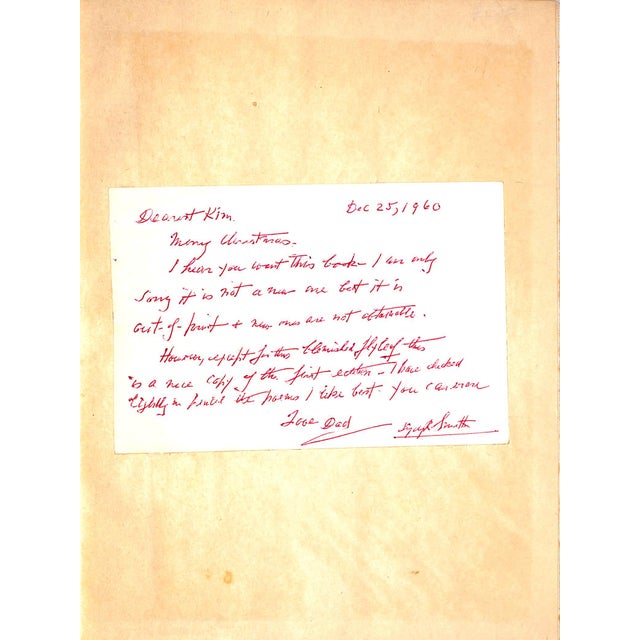 Dearest Kim. Dec 25, 1960
Merry Christmas.
I hear you want this book - I am only
Sorry it is not a new one but it is
out-of-print & new ones are not obtainable.
However, except for this blemished flyleaf this
is a nice copy of the first edition - I have checked
lightly in pencil the poems I like best. You can erase
Love Dad